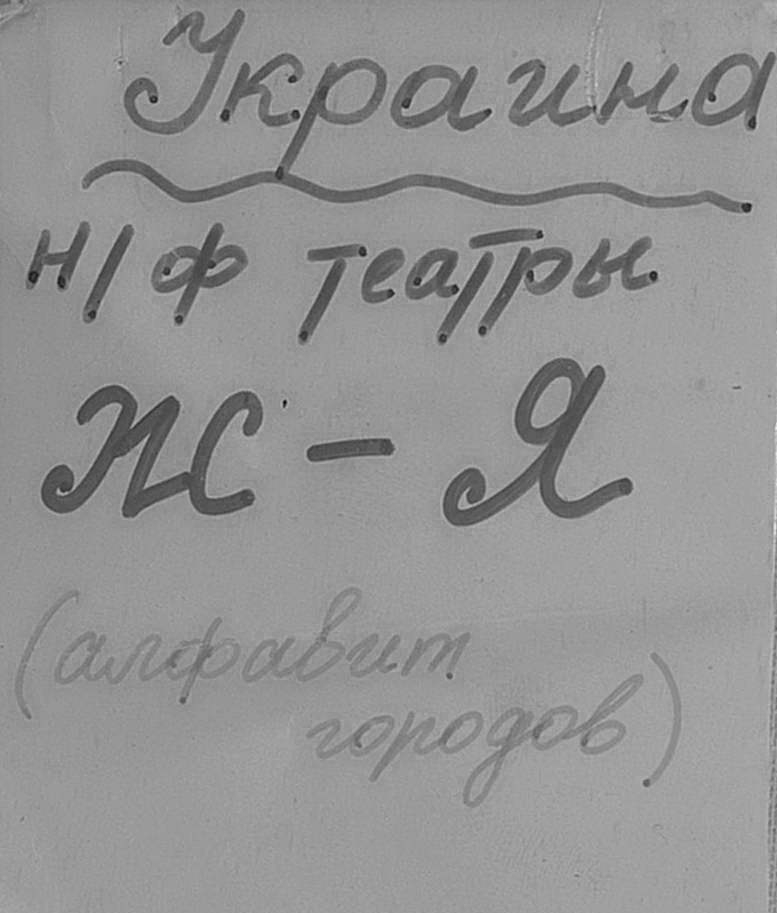 Украина
н/ф театры
Ж - Я
(алфавит
городов)